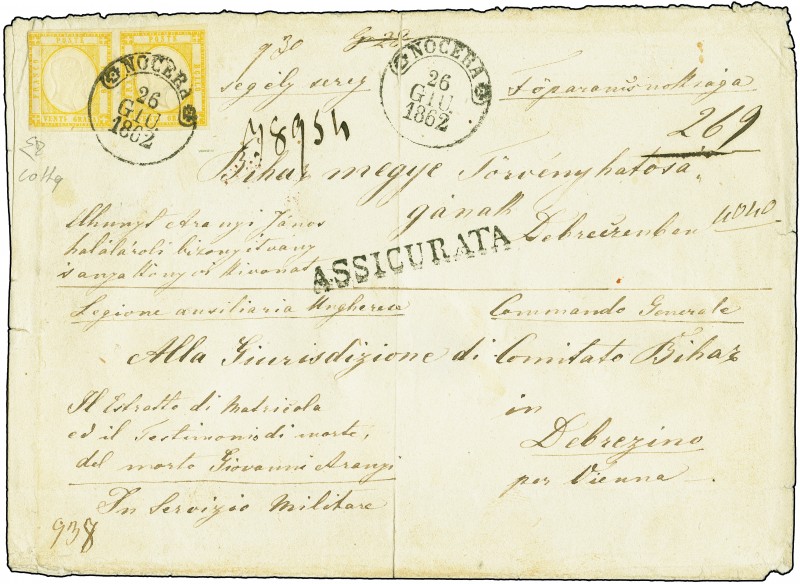 POSTE POSTE
FRANCO BOLLO
VENTI GRANA
NOCERA
26
GIU
1862
NOCERA
26
GIU.
1862
930
segély sereg Főparancsnoksága
78954
269
Bihar megye Törvényhatósá„
gának
Debreczenben 4040
Elhunyt Aranyi János
halálároli bizonyitvány
s anyakönyvi kivonat
ASSICURATA
Legione ausiliaria Ungherese Commando Generale
Alla Giurisdizione di Comitato Bihar
in
Debrezino
per Vienna
Il Estratto di Matricola
ed il Testimonio di morte,
del morto Giovanni Aranyi
In Servizio Militare
938